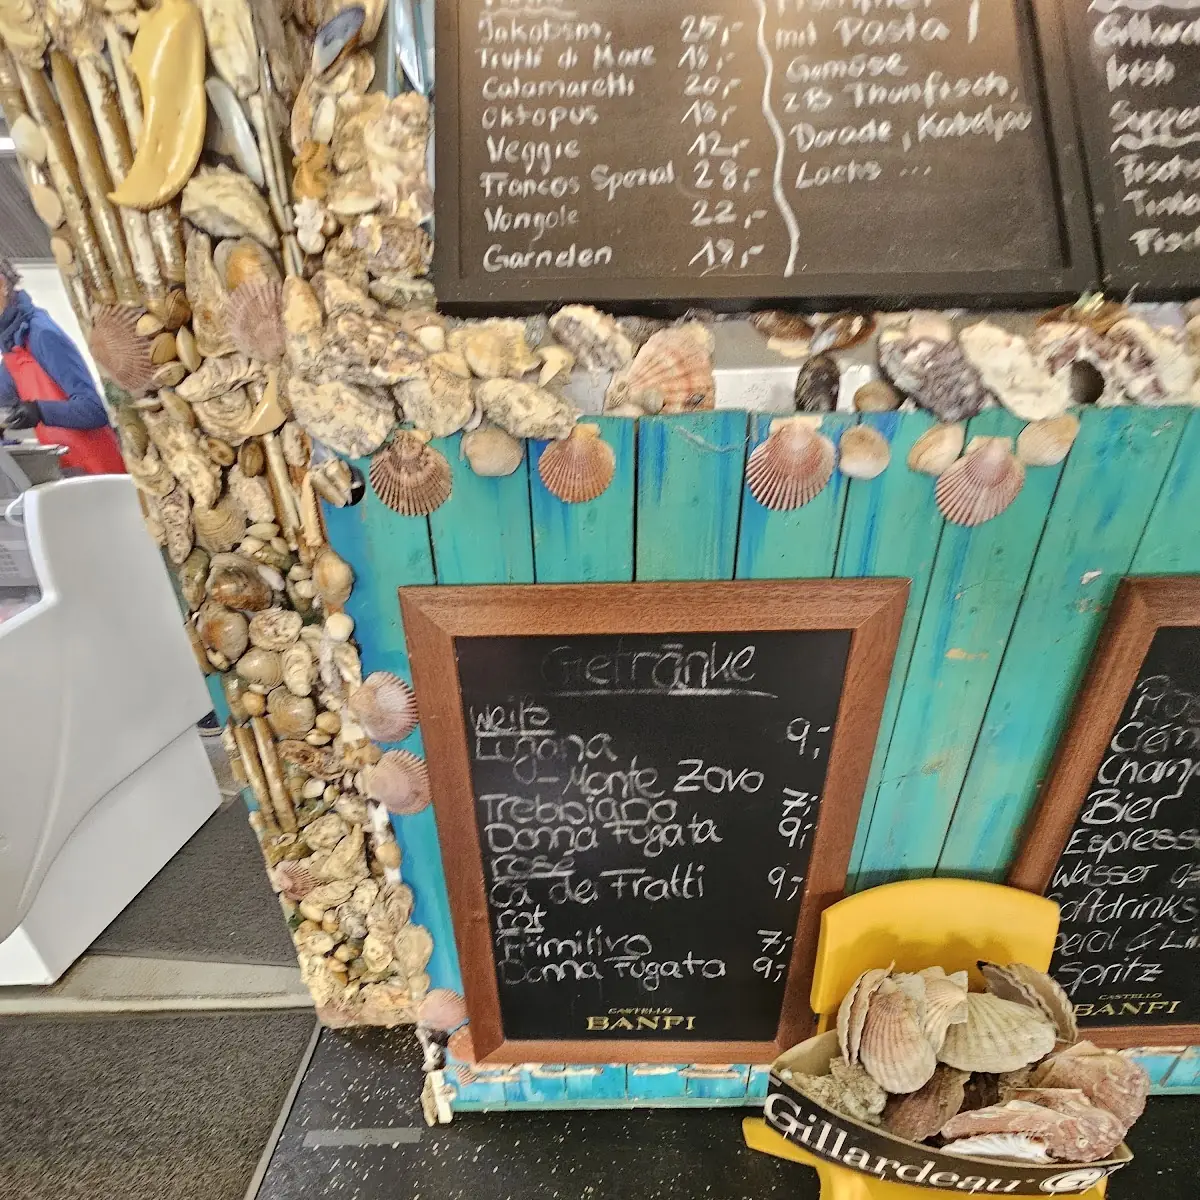 Jakobsm. 25,-
Frutti di Mare 18,-
Calamaretti 20,-
Oktopus 18,-
Veggie 12,-
Francos Spezial 28,-
Vongole 22,-
Garnelen 18,-
mit Pasta /
Gemüse
zB Thunfisch,
Dorade, Kabeljau
Lachs ...
Gillard
Irish
Suppe
Fisch
Getränke
weiß
Lugana 9,-
Monte Zovo
Trebbiano 7,-
Donna Fugata 9,-
rosé
Ca dei Fratti 9,-
rot
Primitivo 7,-
Donna Fugata 9,-
CASTELLO
BANFI
Crém
Champ
Bier
Espresso
Wasser
Softdrinks
Spritz
CASTELLO
BANFI
Gillardeau G